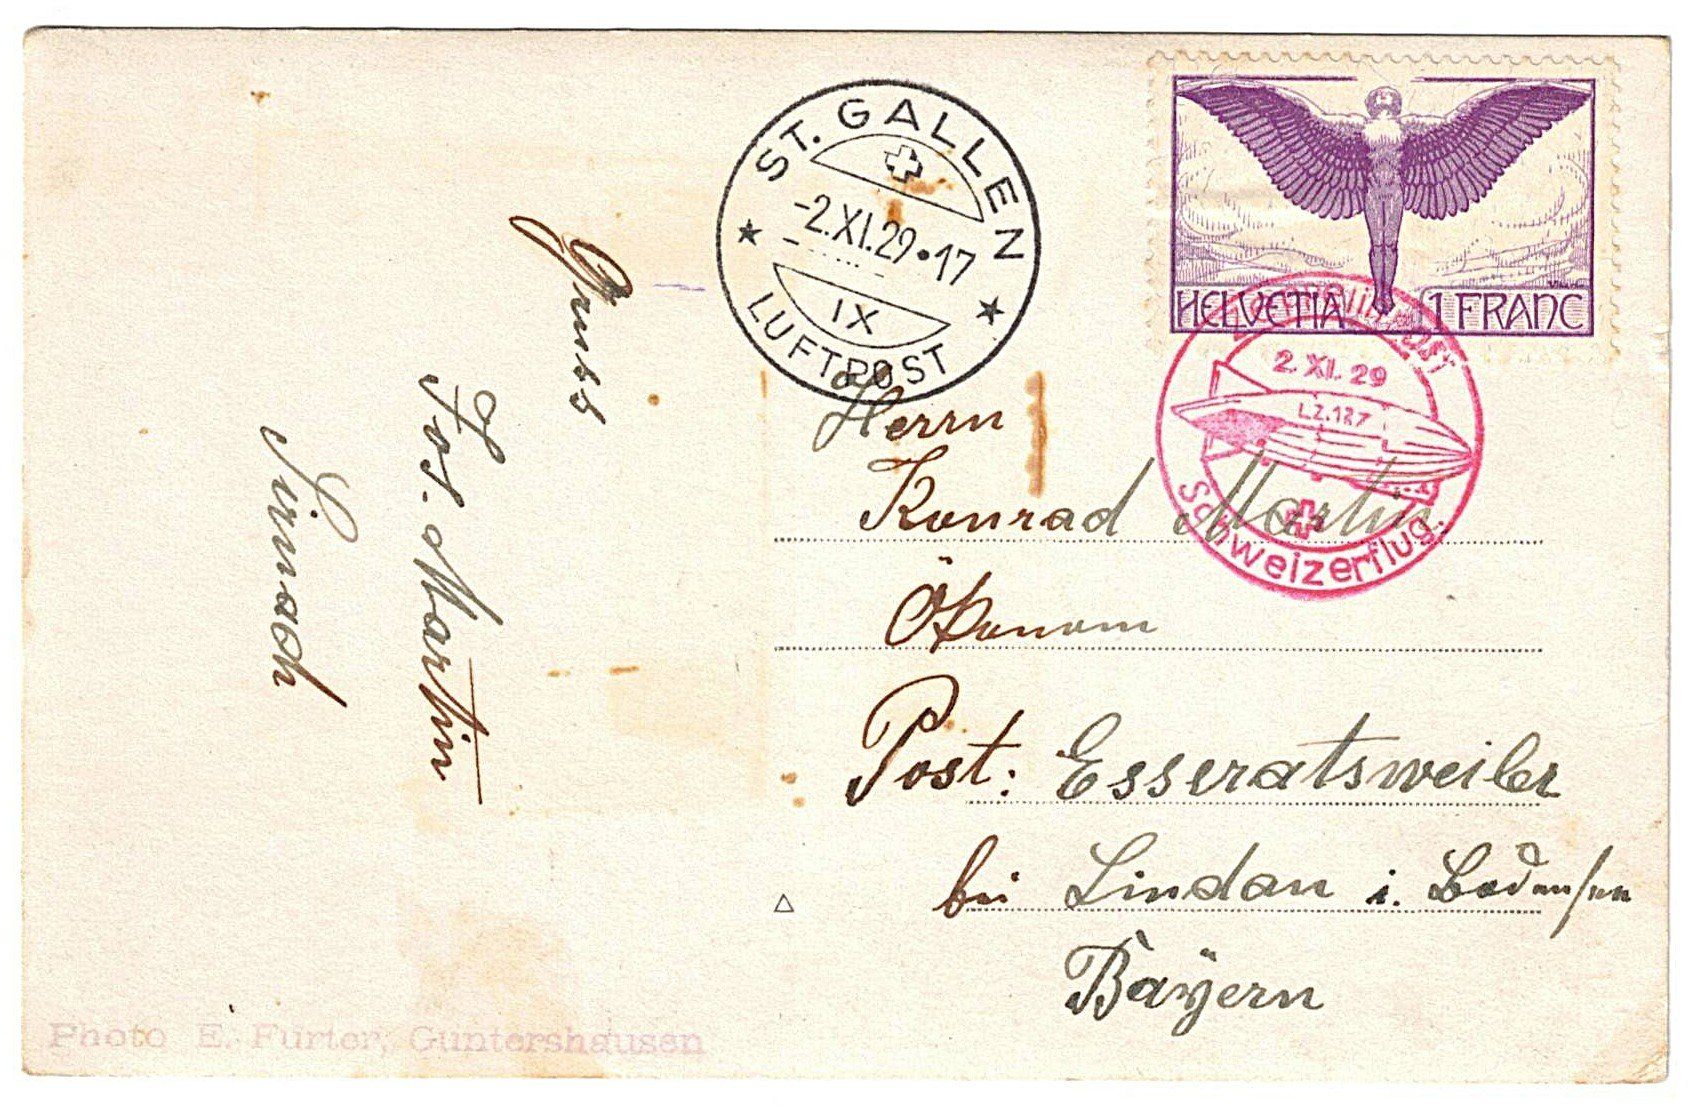 ST. GALLEN
-2.XI.29•17
IX
LUFTPOST
HELVETIA 1 FRANC
Zeppelin-Post
2. XI. 29
L.Z.127
Schweizerflug.
Gruss
Jos. Martin
Sirnach
Herrn
Konrad Martin
Ökonom
Post: Esseratsweiler
bei Lindau i. Bodensee
Bayern
Photo E. Furter, Guntershausen